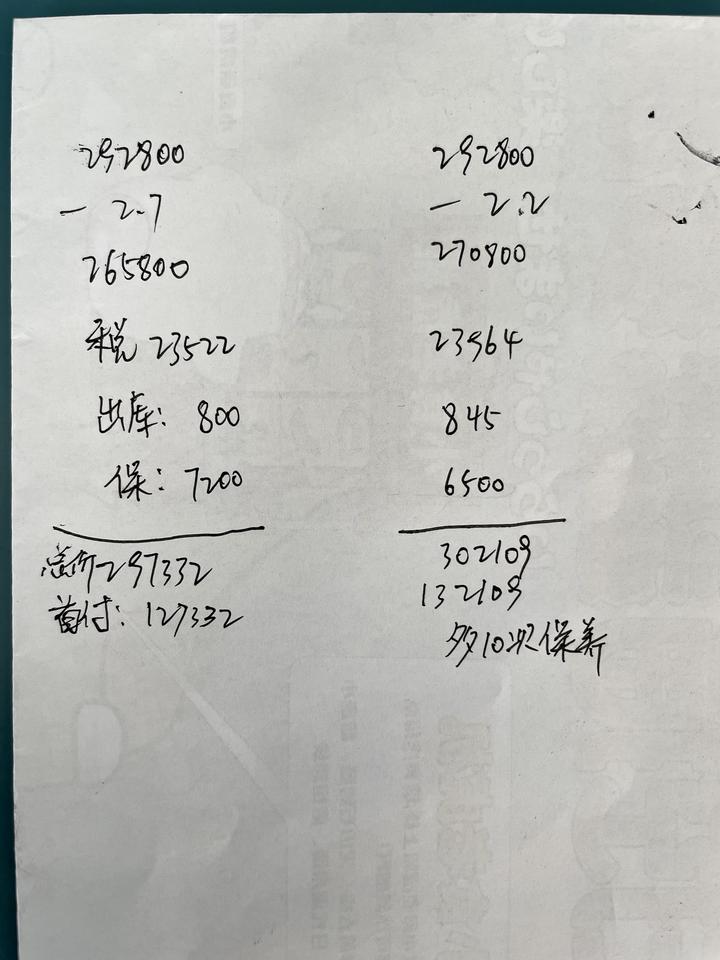 292800
- 2.7
265800
税 23522
出库: 800
保: 7200
总价 297332
首付: 127332
292800
- 2.2
270800
23964
845
6500
302109
132109
多10次保养